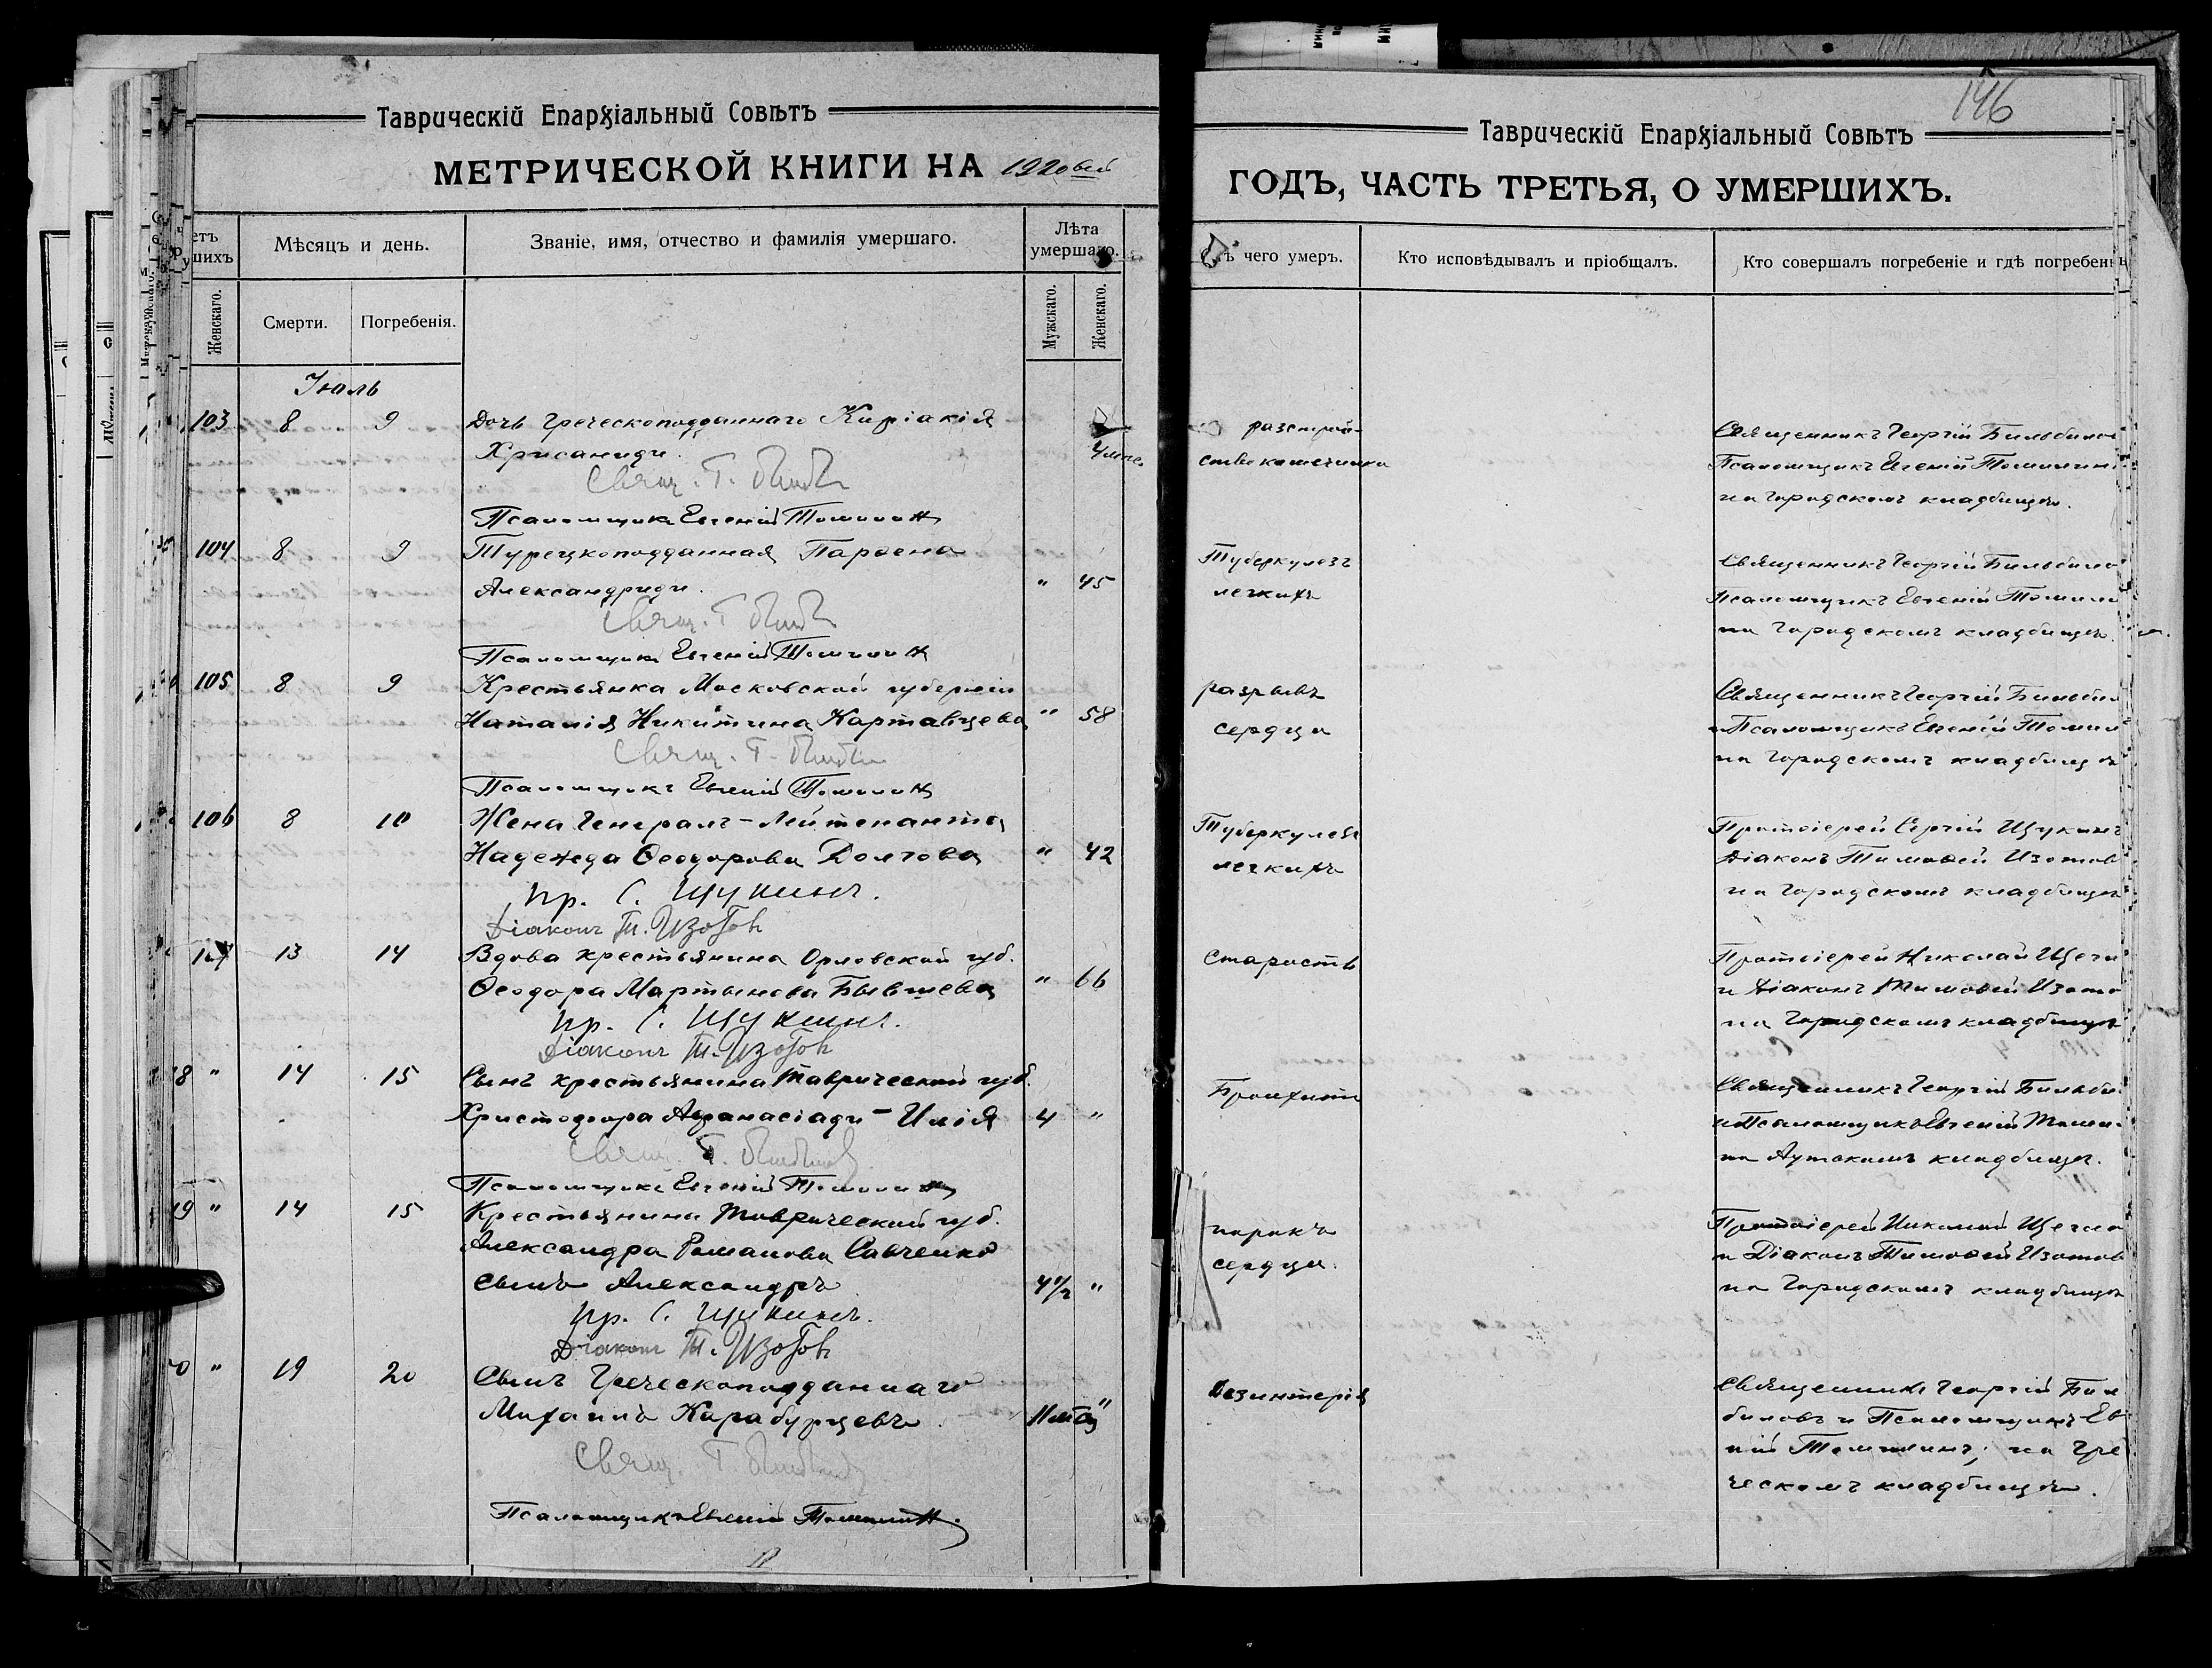 Таврическій Епархіальный Совѣтъ
МЕТРИЧЕСКОЙ КНИГИ НА 1920вый
етъ
шихъ
Мѣсяцъ и день.
Званіе, имя, отчество и фамилія умершаго.
Лѣта
умершаго.
Женскаго.
Смерти.
Погребенія.
Мужскаго.
Женскаго.
Іюль
103 8 9 Дочь греческоподданнаго Киріакія
Хрисаниди.
Свящ. Г.
Псаломщикъ Евгеній Томилинъ
104 8 9 Турецкоподданная Парѳена
Александриди. " 45
Свящ. Г.
Псаломщикъ Евгеній Томилинъ
105 8 9 Крестьянка Московской губерніи
Наталія Никитина Картавцева " 58
Свящ. Г.
Псаломщикъ Евгеній Томилинъ
106 8 10 Жена Генералъ-Лейтенанта
Надежда Ѳеодорова Долгова " 42
Пр. С. Щукинъ.
Діаконъ Т. Изотов
107 13 14 Вдова крестьянина Орловской губ.
Ѳеодора Мартынова Бывшева " 66
Пр. С. Щукинъ.
Діаконъ Т. Изотов
8 " 14 15 Сынъ крестьянина Таврической губ.
Христофора Аѳанасіади - Илія 4 "
Свящ. Г.
Псаломщикъ Евгеній Томилинъ
9 " 14 15 Крестьянина Таврической губ.
Александра Романова Савченко
сынъ Александръ 4½ "
Пр. С. Щукинъ.
Діаконъ Т. Изотов
0 " 19 20 Сынъ Греческоподданнаго
Михаилъ Карабурцевъ. 11 "
Свящ. Г.
Псаломщикъ Евгеній Томилинъ.
146
Таврическій Епархіальный Совѣтъ
ГОДЪ, ЧАСТЬ ТРЕТЬЯ, О УМЕРШИХЪ.
чего умеръ.
Кто исповѣдывалъ и пріобщалъ.
Кто совершалъ погребеніе и гдѣ погребенъ
разстрой-
ство кишечника
Священникъ Георгій Бильбило
Псаломщикъ Евгеній Томилин
на Городскомъ кладбищѣ.
Туберкулезъ
легкихъ
Священникъ Георгій Бильбило
Псаломщикъ Евгеній Томили
на Городскомъ кладбищѣ.
разрывъ
сердца
Священникъ Георгій Бильбил
и Псаломщикъ Евгеній Томил
на Городскомъ кладбищѣ
Туберкулезъ
легкихъ
Протоіерей Сергій Щукинъ
Діаконъ Тимоѳей Изотов
на Городскомъ кладбищѣ
старость
Протоіерей Николай Щегл
и Діаконъ Тимоѳей Изото
на Городскомъ кладбищѣ
Бронхитъ
Священникъ Георгій Бильби
и Псаломщикъ Евгеній Томи
на Аутскомъ кладбищѣ.
порокъ
сердца.
Протоіерей Николай Щегло
и Діаконъ Тимоѳей Изотов
на Городскомъ кладбищѣ
дезинтерія
Священникъ Георгій Бил
биловъ и Псаломщикъ Ев
ній Томилинъ; на Гре
ческомъ кладбищѣ.